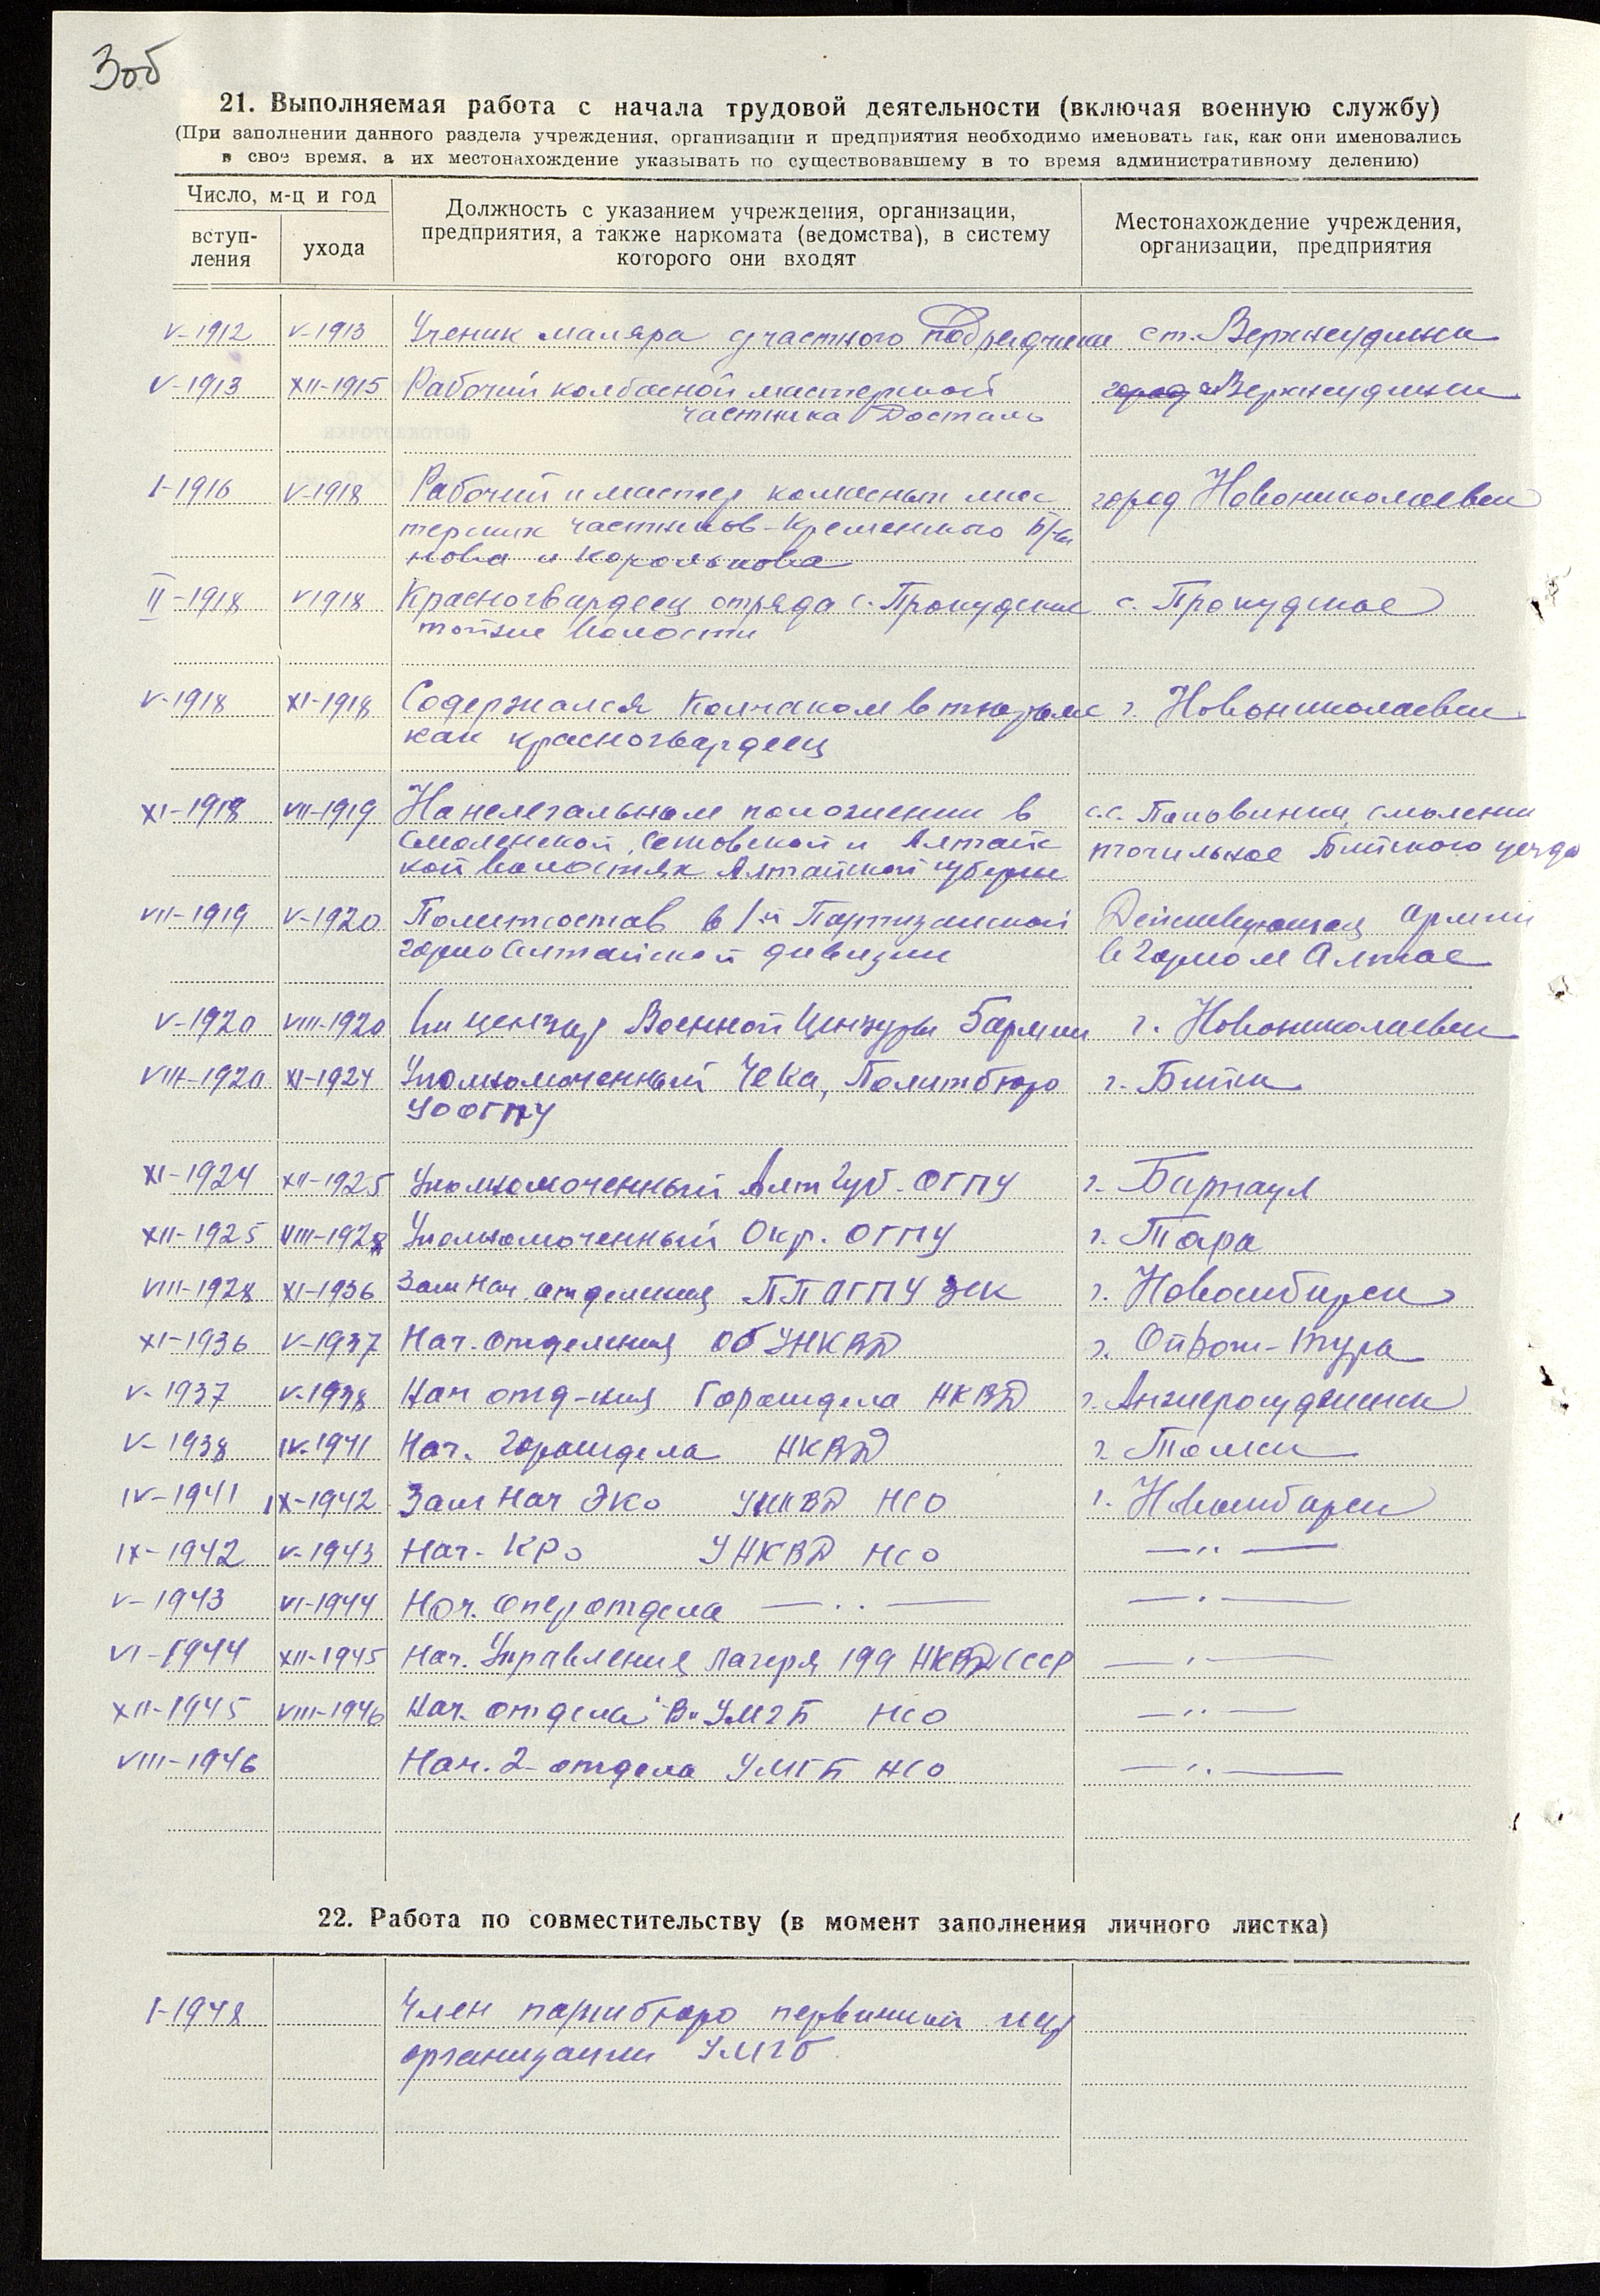 3об
21. Выполняемая работа с начала трудовой деятельности (включая военную службу)
(При заполнении данного раздела учреждения, организации и предприятия необходимо именовать так, как они именовались
в свое время, а их местонахождение указывать по существовавшему в то время административному делению)
Число, м-ц и год
вступ-
ления
ухода
Должность с указанием учреждения, организации,
предприятия, а также наркомата (ведомства), в систему
которого они входят
Местонахождение учреждения,
организации, предприятия
V-1912 V-1913 Ученик маляра у частного подрядчика ст. Верхнеудинск
V-1913 XII-1915 Рабочий колбасной мастерской г. Верхнеудинск
частника Досталь
I-1916 V-1918 Рабочий и мастер колбасных мас город Новониколаевск
терских частников-Кременного
нова и Королькова
II-1918 V1918 Красногвардеец отряда с. Прокудское с. Прокудское
волости
V-1918 XI-1918 Содержался Колчаком в тюрьме г. Новониколаевск
как красногвардеец
XI-1918 VII-1919 На нелегальном положении в с.с. Половинка, Смоленск
Смоленской, Сетовской и Алтайс точильное Бийского уезда
кой волостях Алтайской губернии
VII-1919 V-1920 Политсостав в 1й Партизанской Действующая армия
горно Алтайской дивизии в Горном Алтае
V-1920 VIII-1920 цензор Военной Цензуры 5 армии г. Новониколаевск
VIII-1920 XI-1924 Уполномоченный ЧеКа, Политбюро г. Бийск
УООГПУ
XI-1924 XII-1925 Уполномоченный Алтгуб. ОГПУ г. Барнаул
XII-1925 VIII-1928 Уполномоченный Окр. ОГПУ г. Тара
VIII-1928 XI-1936 Зам нач. отделения ППОГПУ ЗСК г. Новосибирск
XI-1936 V-1937 Нач. отделения ОбУНКВД г. Ойрот-Тура
V-1937 V-1938 Нач отд-ния Горотдела НКВД г. Анжеросудженск
V-1938 IV-1941 Нач. горотдела НКВД г. Томск
IV-1941 IX-1942 Зам Нач ЭКо УНКВД НСО г. Новосибирск
IX-1942 V-1943 Нач. КРо УНКВД НСО —"—
V-1943 VI-1944 Нач. оперотдела —"— —"—
VI-1944 XII-1945 Нач. Управления лагеря 199 НКВД СССР —"—
XII-1945 VIII-1946 Нач. отдела "В" УМГБ НСО —"—
VIII-1946 Нач. 2-отдела УМГБ НСО —"—
22. Работа по совместительству (в момент заполнения личного листка)
I-1948 Член партбюро первичной
организации УМГБ